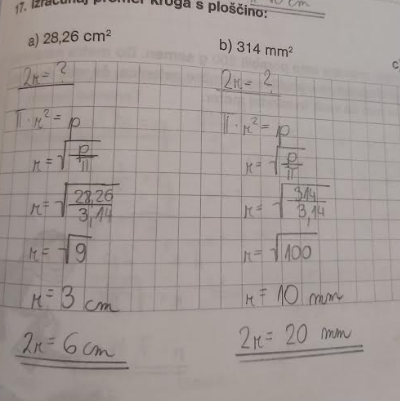 10 cm
17. Izračunaj premer kroga s ploščino:
a) 28,26 cm²
2r = ?
π · r² = p
r = √p/π
r = √28,26/3,14
r = √9
r = 3 cm
2r = 6 cm
b) 314 mm²
2r = ?
π · r² = p
r = √p/π
r = √314/3,14
r = √100
r = 10 mm
2r = 20 mm
c)